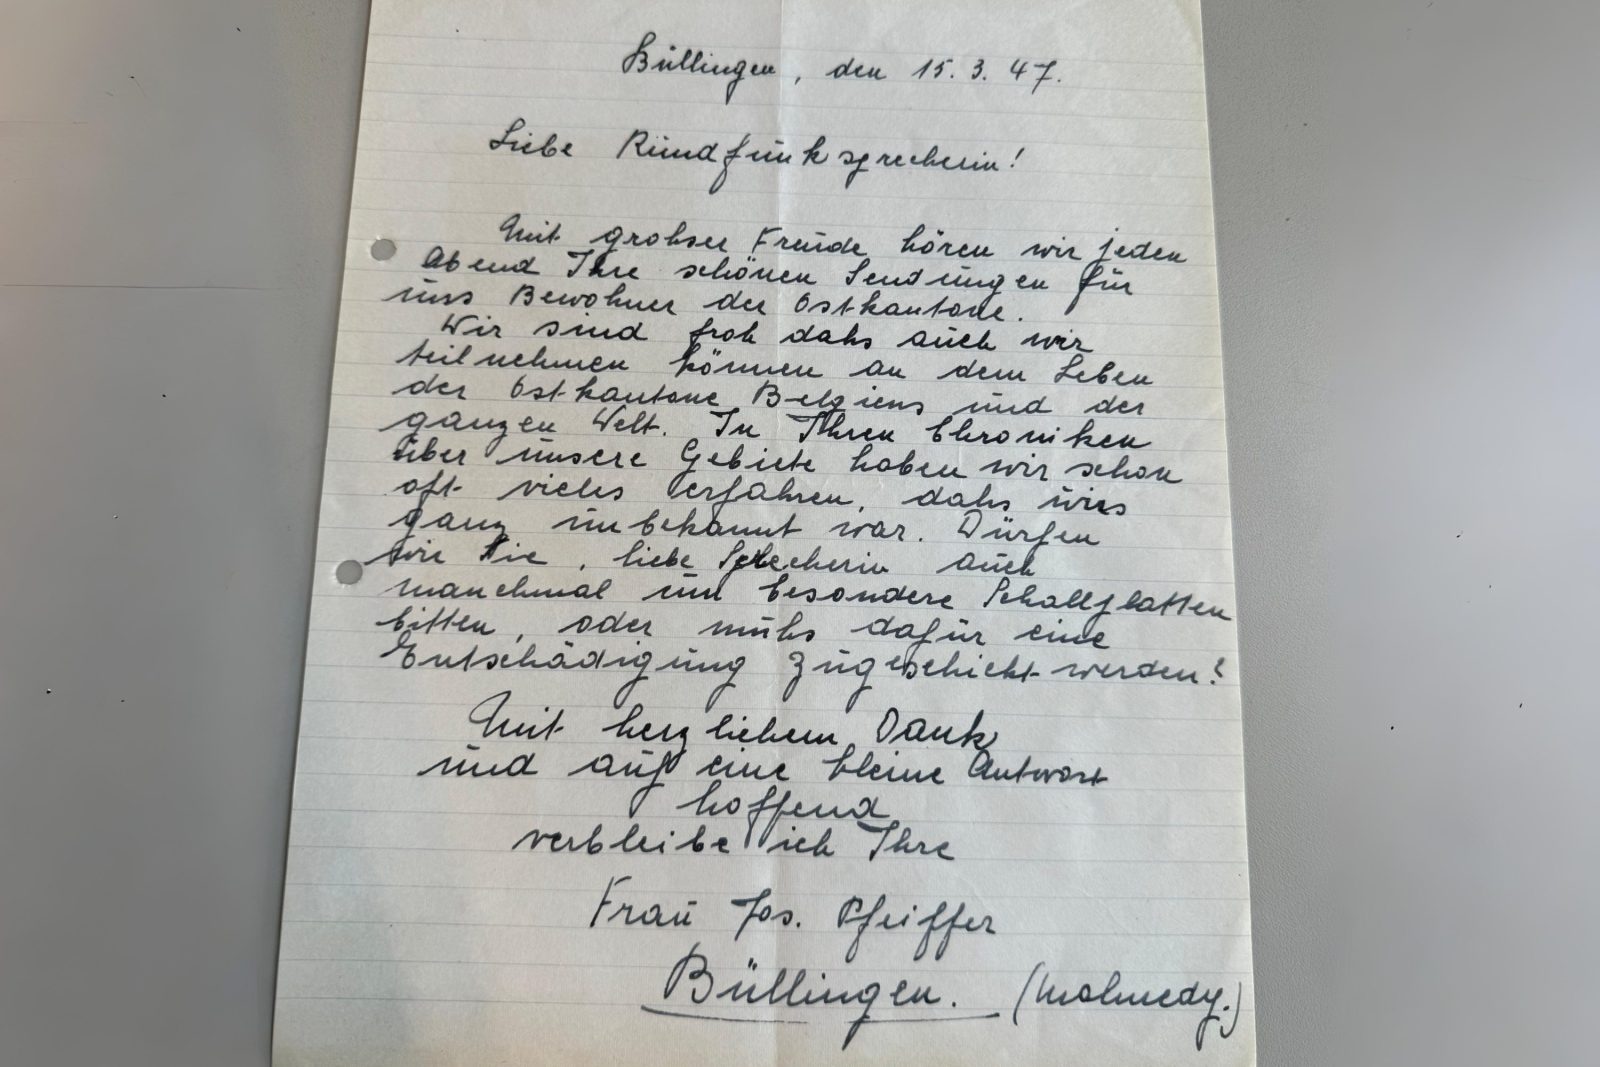 Büllingen, den 15. 3. 47.
Liebe Rundfunksprecherin!
Mit grohser Freude hören wir jeden
Abend Ihre schönen Sendungen für
uns Bewohner der Ostkantone.
Wir sind froh dahs auch wir
teilnehmen können an dem Leben
der Ostkantone Belgiens und der
ganzen Welt. In Ihren Chroniken
über unsere Gebiete haben wir schon
oft vieles erfahren, dahs uns
ganz unbekannt war. Dürfen
wir Sie, liebe Sprecherin auch
manchmal um besondere Schallplatten
bitten, oder muhs dafür eine
Entschädigung zugeschickt werden?
Mit herzlichem Dank
und auf eine kleine Antwort
hoffend
verbleibe ich Ihre
Frau Jos. Pfeiffer
Büllingen. (Malmedy.)